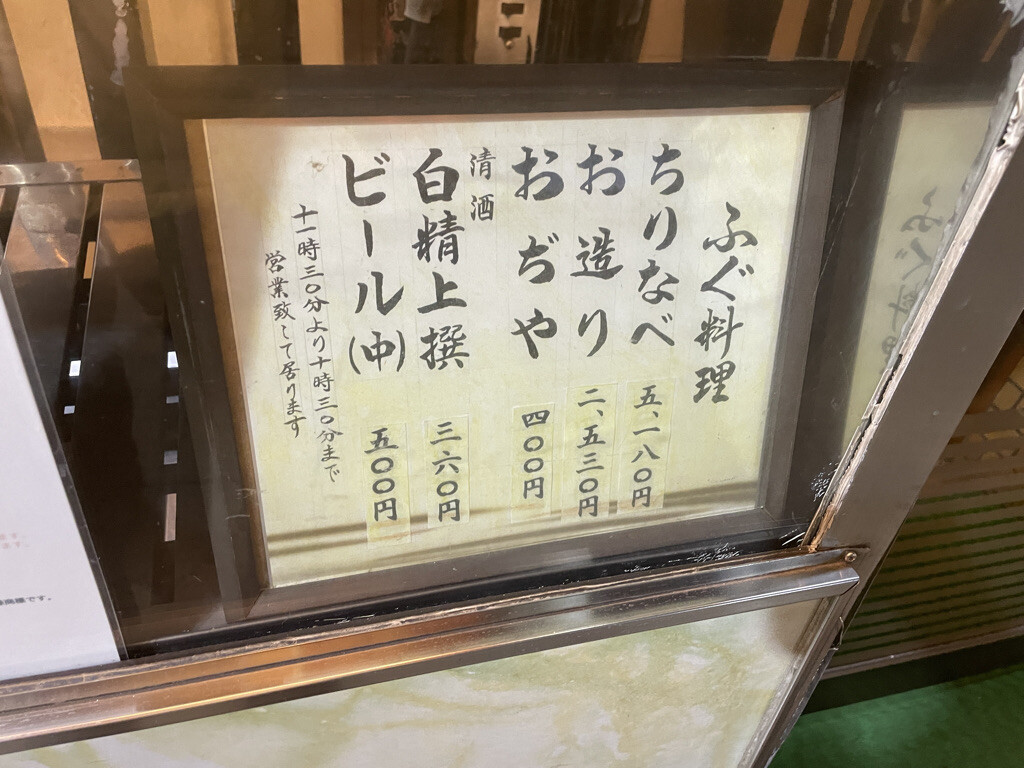 ふぐ料理
ちりなべ 五、一八〇円
お造り 二、五三〇円
おぢや 四〇〇円
清酒
白精上撰 三六〇円
ビール(中) 五〇〇円
十一時三〇分より十時三〇分まで
営業致して居ります